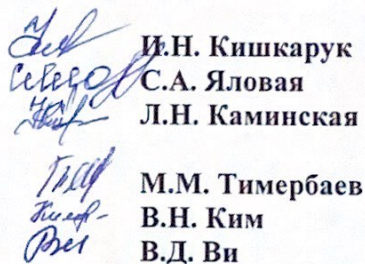 И.Н. Кишкарук
С.А. Яловая
Л.Н. Каминская
М.М. Тимербаев
В.Н. Ким
В.Д. Ви